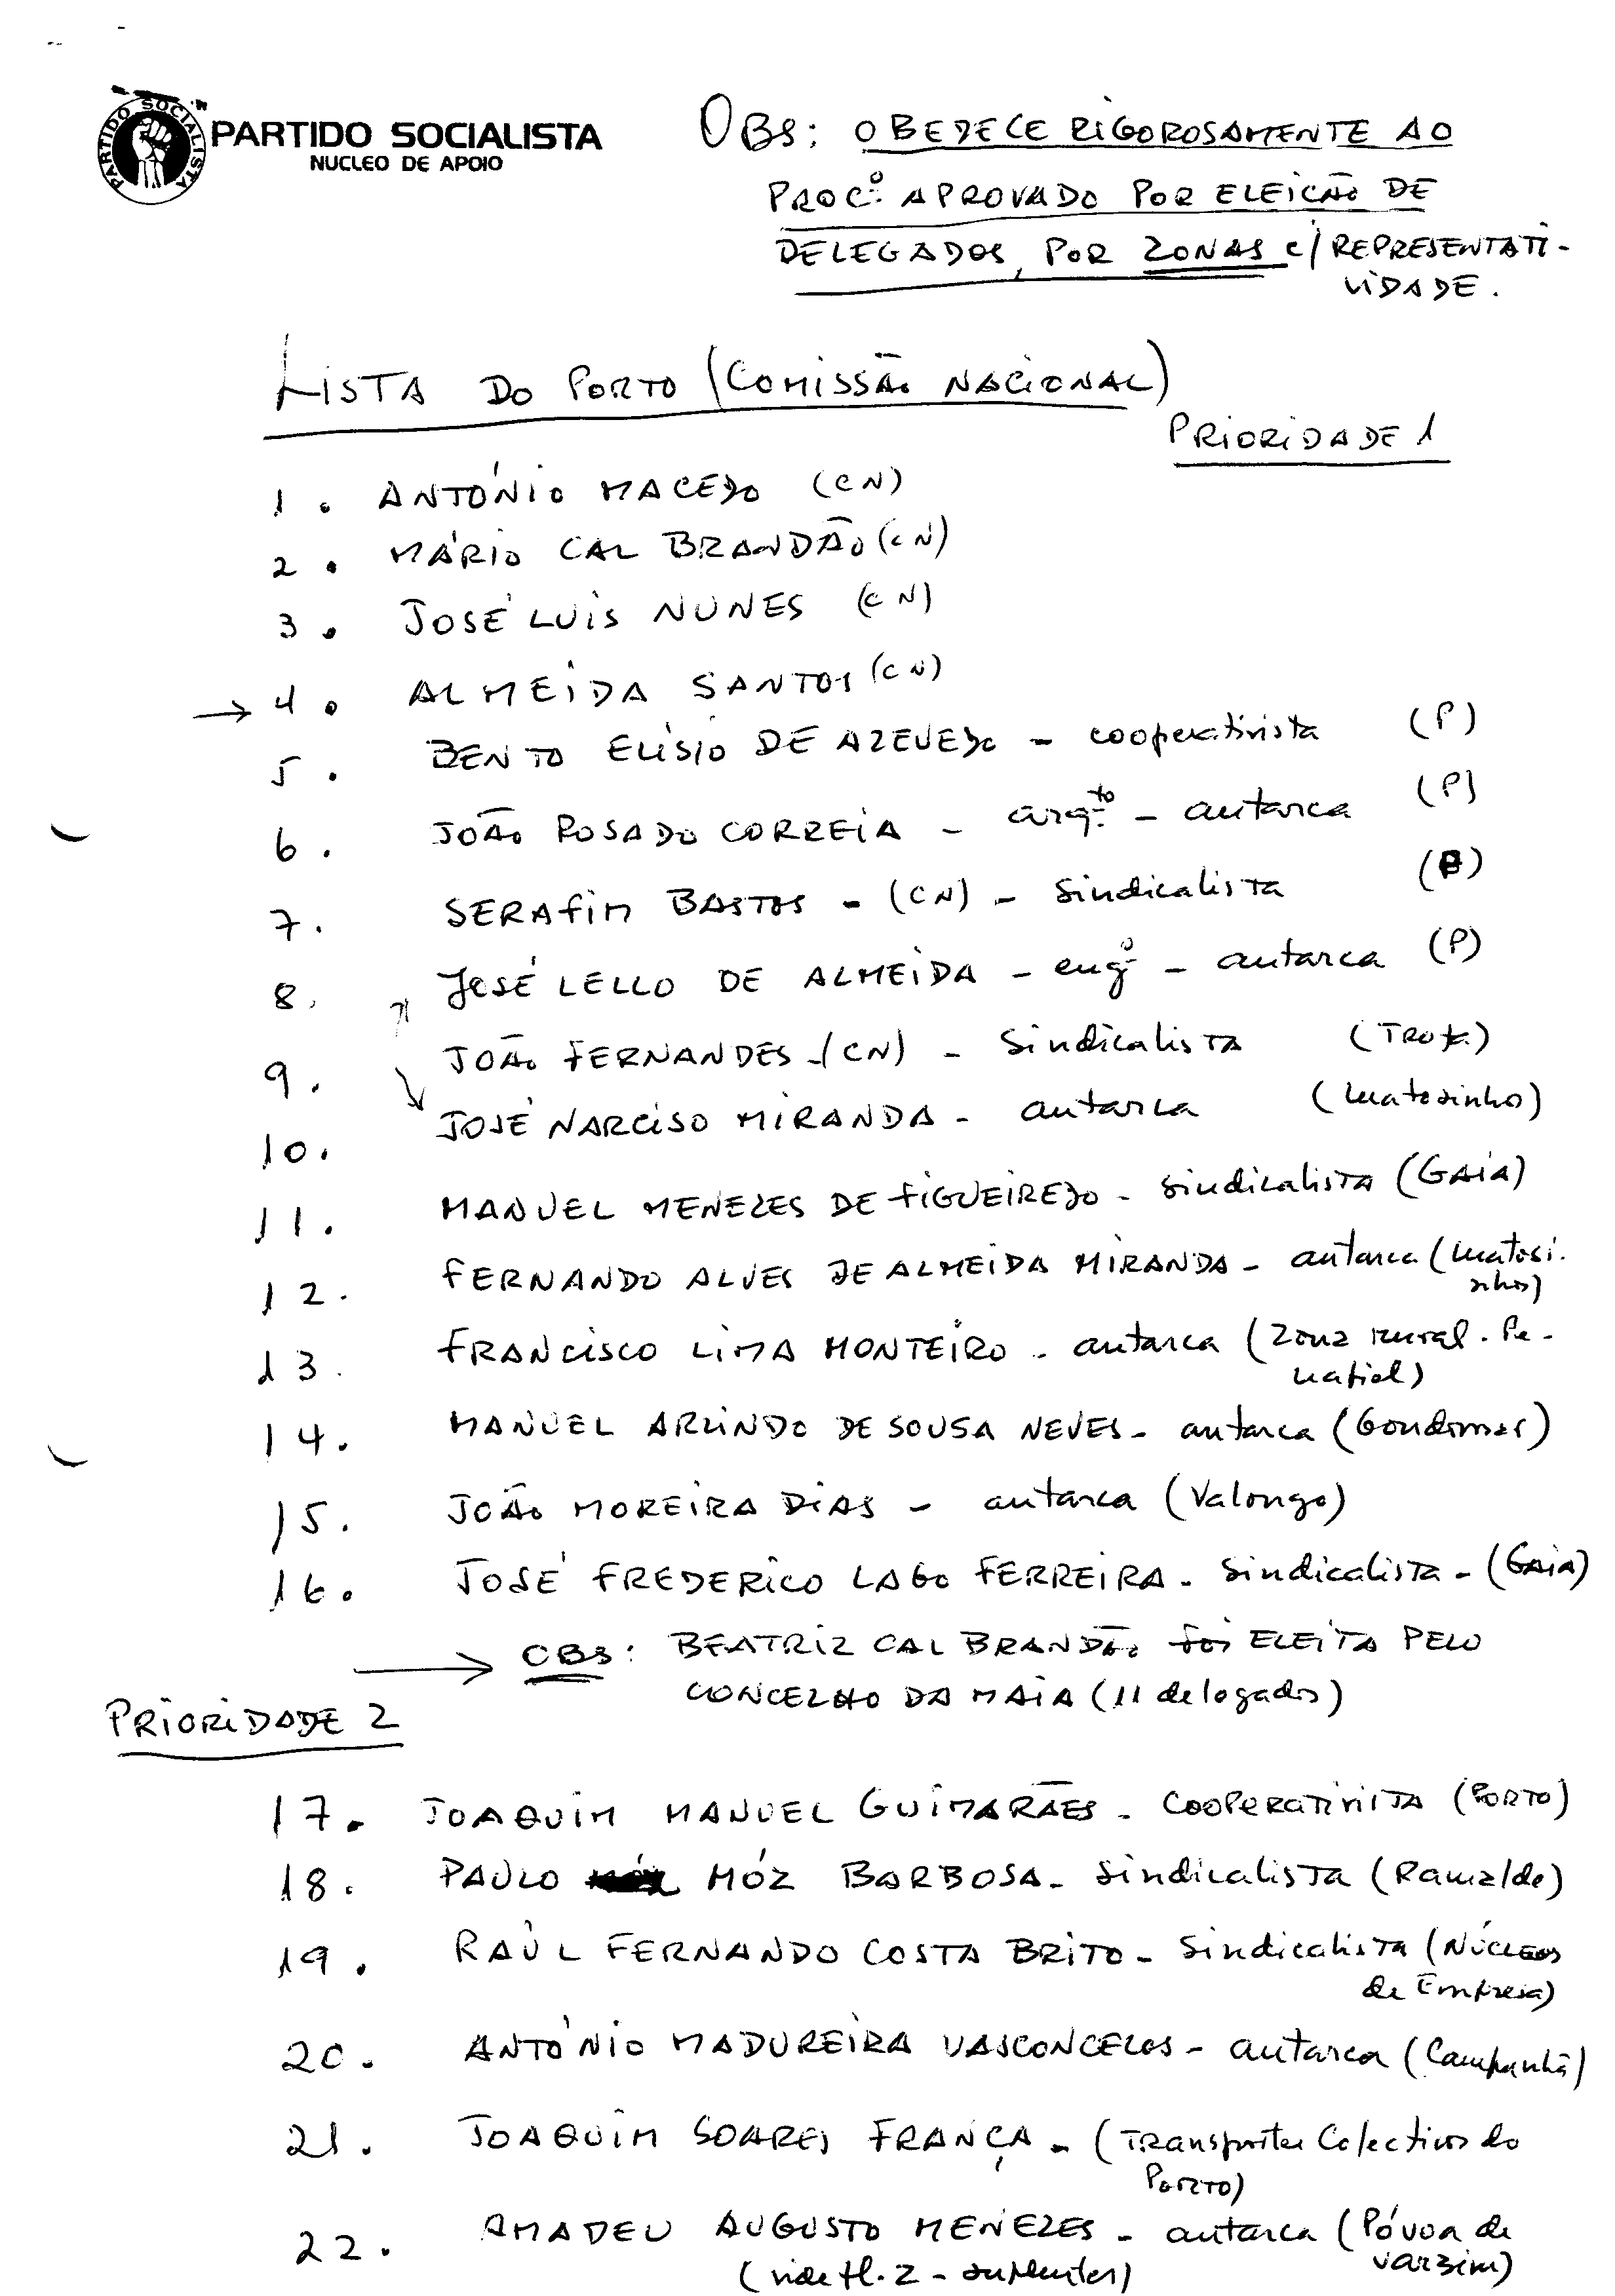 PARTIDO SOCIALISTA
PARTIDO SOCIALISTA
NUCLEO DE APOIO
OBS: OBEDECE RIGOROSAMENTE AO
PROCº. APROVADO POR ELEIÇÃO DE
DELEGADOS, POR ZONAS C/ REPRESENTATI-
VIDADE.
LISTA DO PORTO (COMISSÃO NACIONAL)
PRIORIDADE 1
1. ANTÓNIO MACEDO (CN)
2. MÁRIO CAL BRANDÃO (CN)
3. JOSÉ LUIS NUNES (CN)
→ 4. ALMEIDA SANTOS (CN)
5. BENTO ELÍSIO DE AZEVEDO - cooperativista (P)
6. JOÃO ROSADO CORREIA - arqto. - autarca (P)
7. SERAFIM BASTOS - (CN) - Sindicalista (P)
8. JOSÉ LELLO DE ALMEIDA - engº - autarca (P)
9. JOÃO FERNANDES - (CN) - Sindicalista
10. JOSÉ NARCISO MIRANDA - autarca (Matosinhos)
11. MANUEL MENEZES DE FIGUEIREDO - Sindicalista (GAIA)
12. FERNANDO ALVES DE ALMEIDA MIRANDA - autarca (Matosi-
nhos)
13. FRANCISCO LIMA MONTEIRO - autarca (Zona rural. Pe-
nafiel)
14. MANUEL ARLINDO DE SOUSA NEVES - autarca (Gondomar)
15. JOÃO MOREIRA DIAS - autarca (Valongo)
16. JOSÉ FREDERICO LAGO FERREIRA - Sindicalista - (GAIA)
→ OBS: BEATRIZ CAL BRANDÃO foi ELEITA PELO
CONCELHO DA MAIA (11 delegados)
PRIORIDADE 2
17. JOAQUIM MANUEL GUIMARÃES - COOPERATIVISTA (PORTO)
18. PAULO MÓZ BARBOSA - Sindicalista (Ramalde)
19. RAÚL FERNANDO COSTA BRITO - Sindicalista (NÚCLEOS
de Empresa)
20. ANTÓNIO MADUREIRA VASCONCELOS - autarca (Campanhã)
21. JOAQUIM SOARES FRANÇA - (Transportes Colectivos do
PORTO)
22. AMADEU AUGUSTO MENEZES - autarca (Póvoa de
Varzim)
(vide fl. 2 - suplentes)